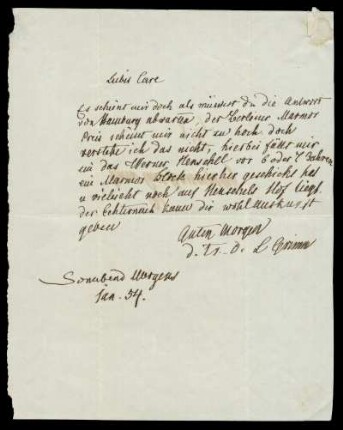 Liebes Care
Es scheint mir doch als müsstest du die Antwort
von Hamburg abwarten, der Berliner Marmor
Preis scheint mir nicht zu hoch doch
verstehe ich das nicht, hierbei fällt mir
ein das Werner Henschel vor 6 oder 7 Jahren
ein Marmor block hierher geschickt hat
u vieleicht noch auf Henschels Hof liegt
der Echternach kann dir wohl Auskunft
geben
Guten Morgen
d. L Grimm
Sonnabend Morgens
Jan. 34.